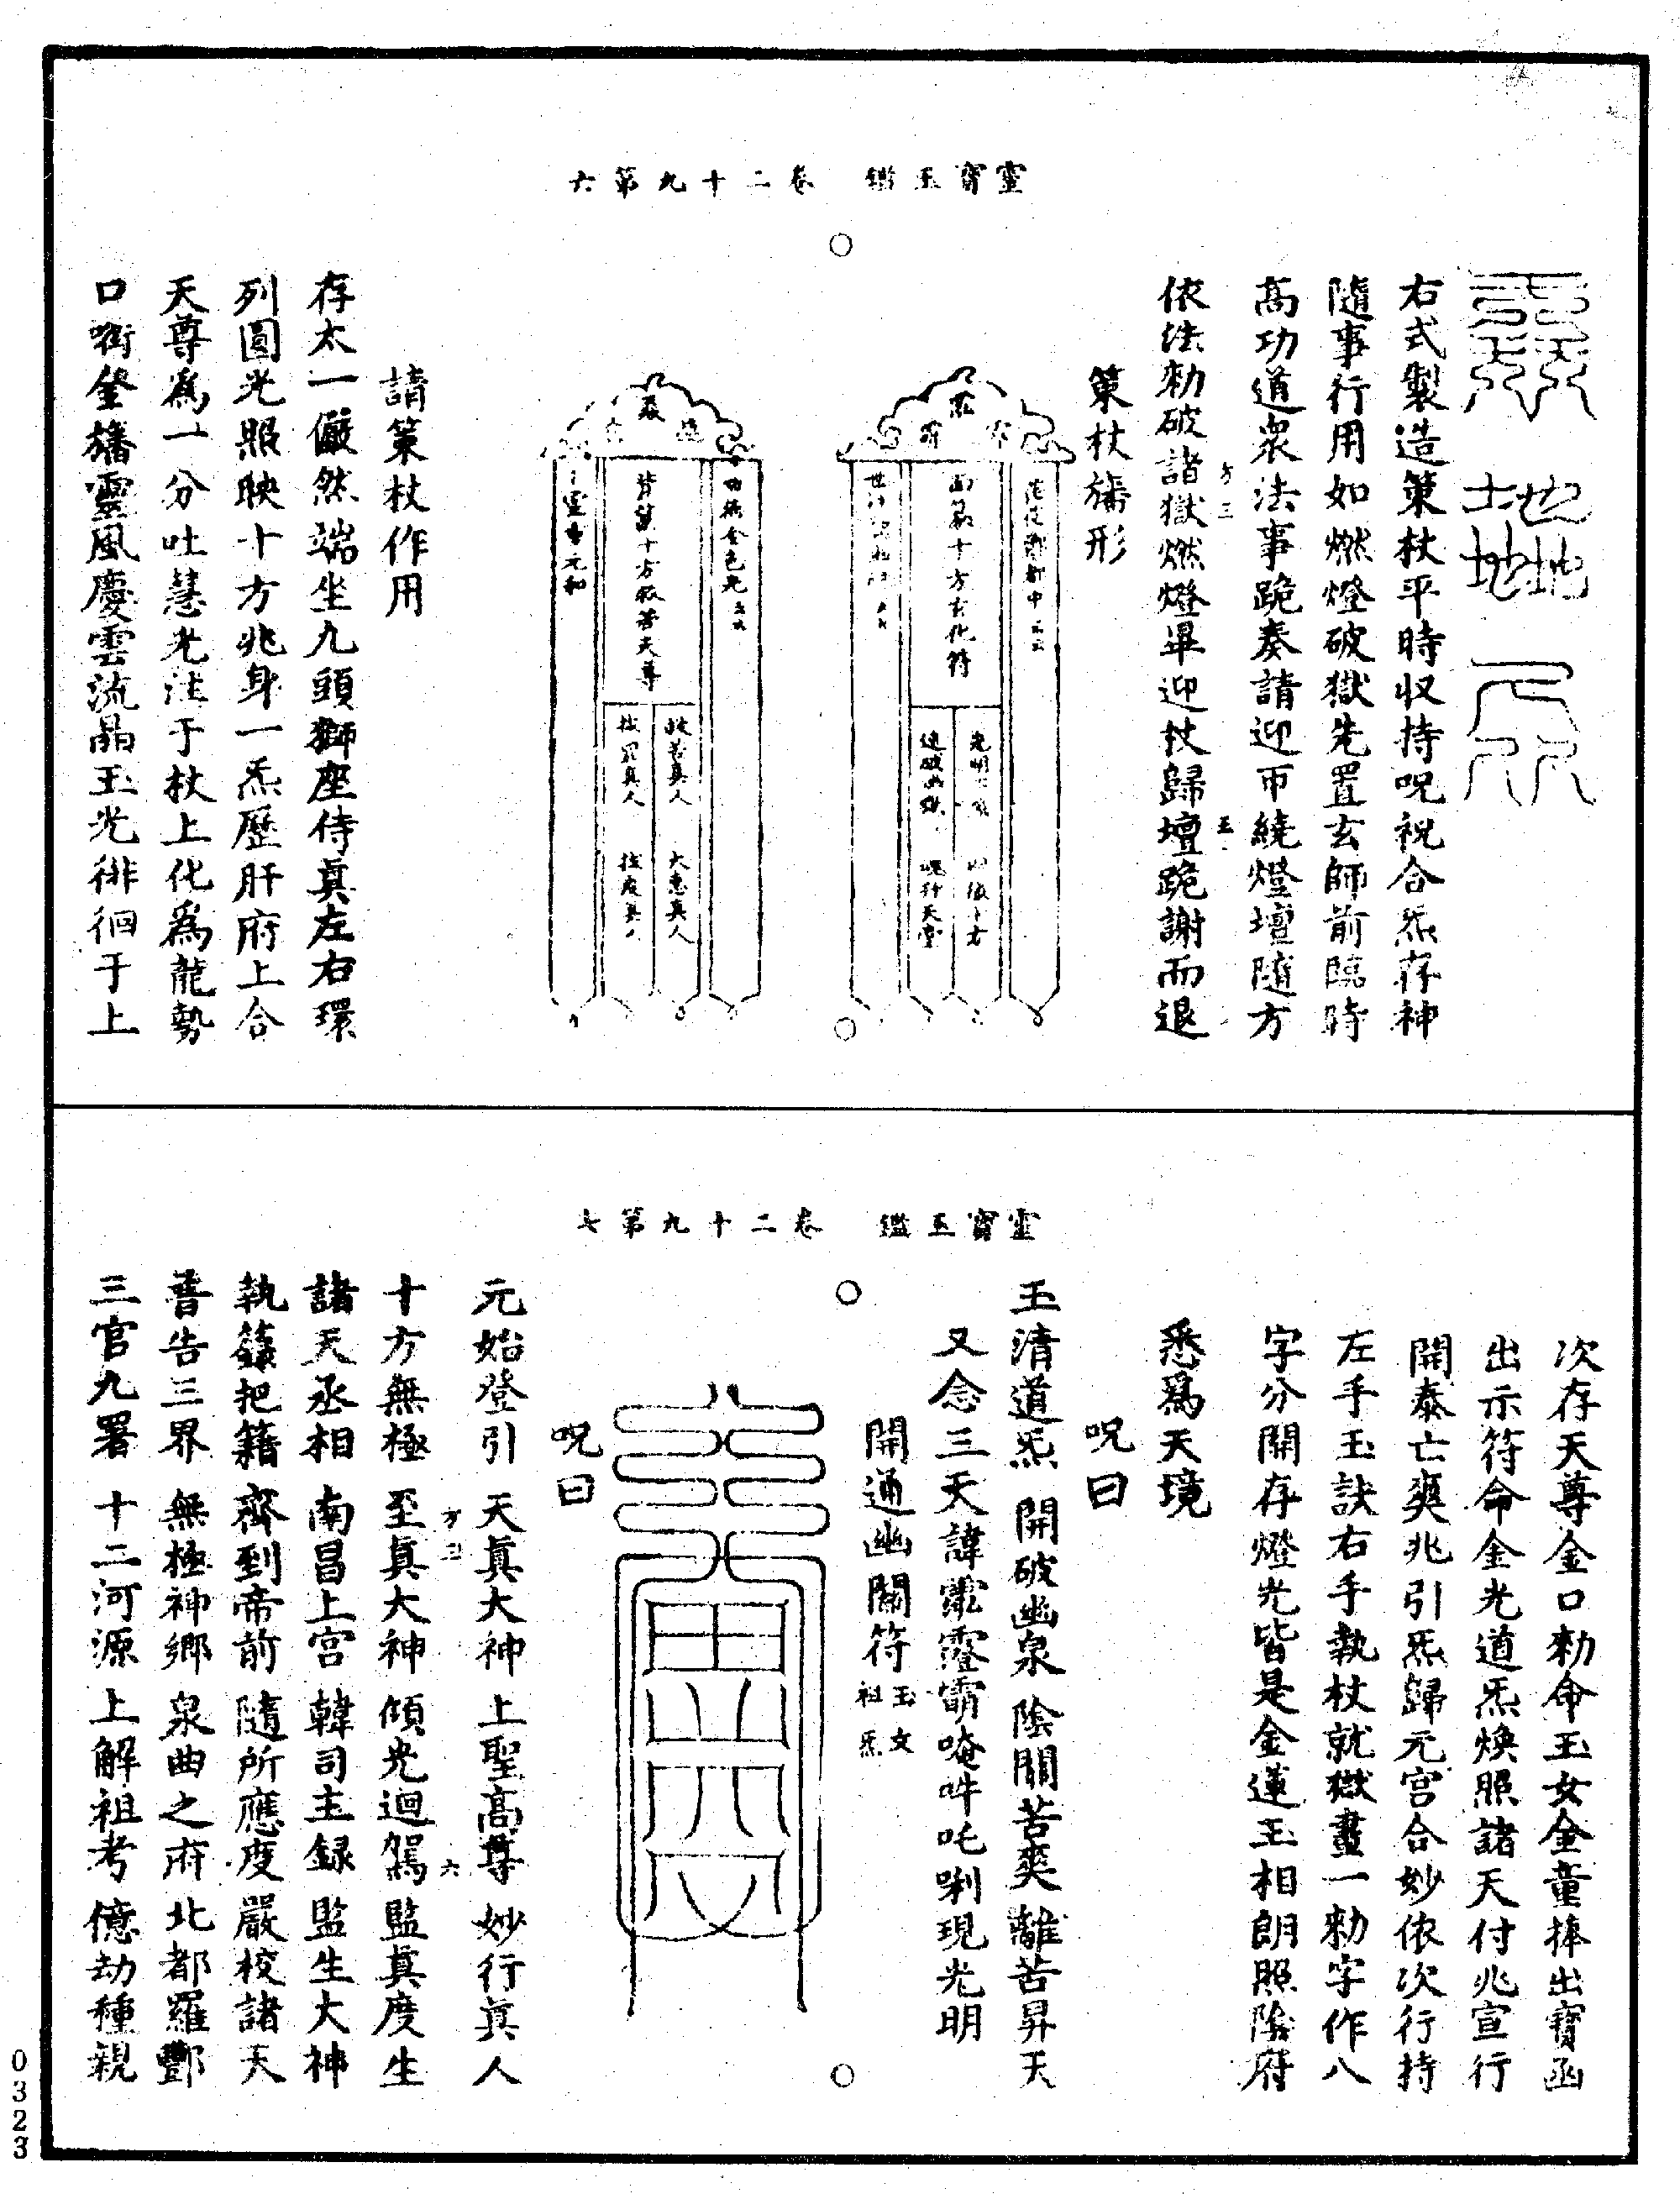 靈寶玉鑑　卷二十九第六
右式製造策杖平時収持呪祝合炁存神
隨事行用如燃燈破獄先置玄師前臨時
高功道衆法事跪奏請迎帀繞燈壇隨方
依法勑破諸獄燃燈畢迎杖歸壇跪謝而退
策杖旛形
面篆十方玄化符
背篆十方救苦天尊
救苦真人　大惠真人
請策杖作用
存太一儼然端坐九頭獅座侍眞左右環
列圓光照映十方兆身一炁歷肝府上合
天尊爲一分吐慧光注于杖上化爲龍勢
口銜金旛靈風慶雲流晶玉光徘徊于上
靈寶玉鑑　卷二十九第七
次存天尊金口勑命玉女金童捧出寶函
出示符命金光道炁煥照諸天付兆宣行
開泰亡爽兆引炁歸元宫合妙依次行持
左手玉訣右手執杖就獄畫一勑字作八
字分開存燈光皆是金蓮玉相朗照陰府
悉爲天境
呪曰
玉清道炁　開破幽泉　陰關苦爽　離苦昇天
又念三天諱　唵吽吒唎現光明
開通幽關符玉女祖炁
呪曰
元始登引　天眞大神　上聖髙尊　妙行眞人
十方無極　至眞大神　傾光迴駕　監眞度生
諸天丞相　南昌上宫　韓司主録　監生大神
執籙把籍　齊到帝前　隨所應度　嚴校諸天
普告三界　無極神鄉　泉曲之府　北都羅酆
三官九署　十二河源　上解祖考　億劫種親
0323